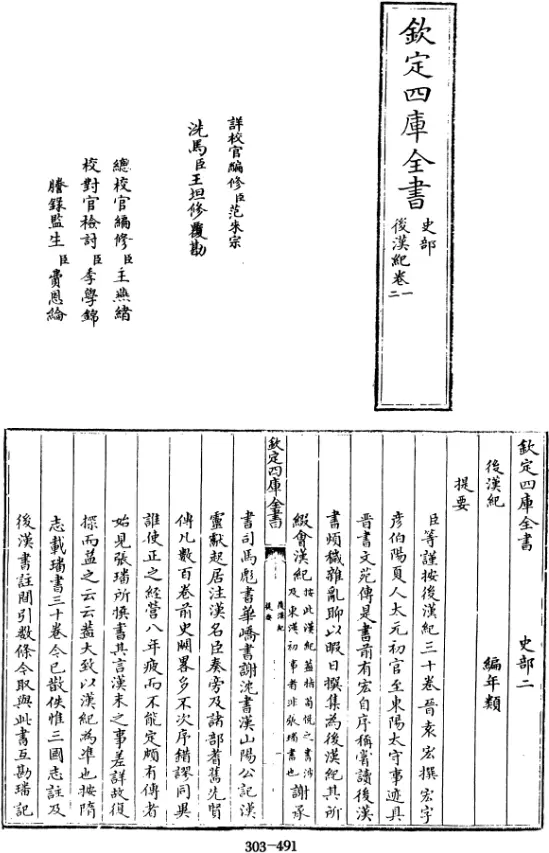 欽定四庫全書
史部
後漢紀卷一二
詳校官編修臣范來宗
洗馬臣王坦修覆勘
總校官編修臣王燕緒
校對官檢討臣李學錦
謄錄監生臣費恩綸
欽定四庫全書 史部二
後漢紀 編年類
提要
臣等謹按後漢紀三十卷晉袁宏撰宏字
彥伯陽夏人大元初官至東陽太守事迹具
晉書文苑傳是書前有宏自序稱嘗讀後漢
書煩穢雜亂聊以暇日撰集為後漢紀其所
綴會漢紀按此漢紀蓋指荀悅之書涉及東漢初事者非張璠書也謝承
欽定四庫全書 後漢紀 提要
書司馬彪書華嶠書謝沈書漢山陽公記漢
靈獻起居注漢名臣奏旁及諸郡耆舊先賢
傳凡數百卷前史闕畧多不次序錯謬同異
誰使正之經營八年疲而不能定頗有傳者
始見張璠所撰書其言漢末之事差詳故復
探而益之云云蓋大致以漢紀為準也按隋
志載璠書三十卷今已散佚惟三國志註及
後漢書註間引數條今取與此書互勘璠記
303-491